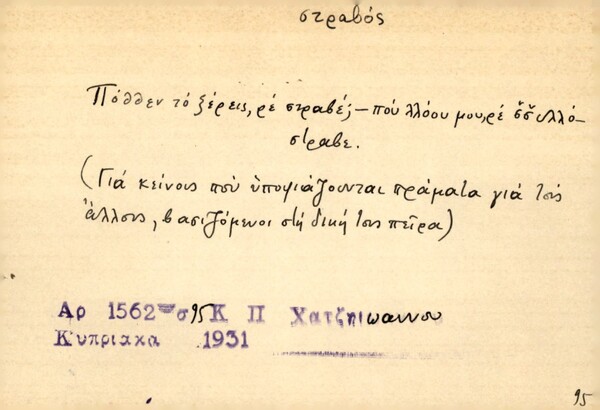 στραβός
Πόθθεν τό ξέρεις, ρέ στραβέ; – πού λλόου μου, ρέ σ̌σ̌υλλό-
στραβε.
(Γιά κείνους πού ὑποψιάζουνται πράματα γιά τούς
ἄλλους, βασιζόμενοι στή δική τους πεῖρα)
Αρ 1562 σ 95 Κ Π Χατζηιωαννου
Κυπριακα 1931
95